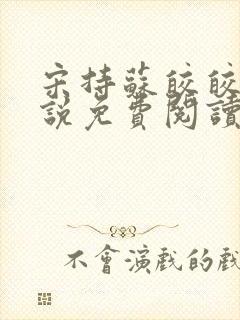 宋持蘇皎皎
說免費閱讀
不會演戲的戲